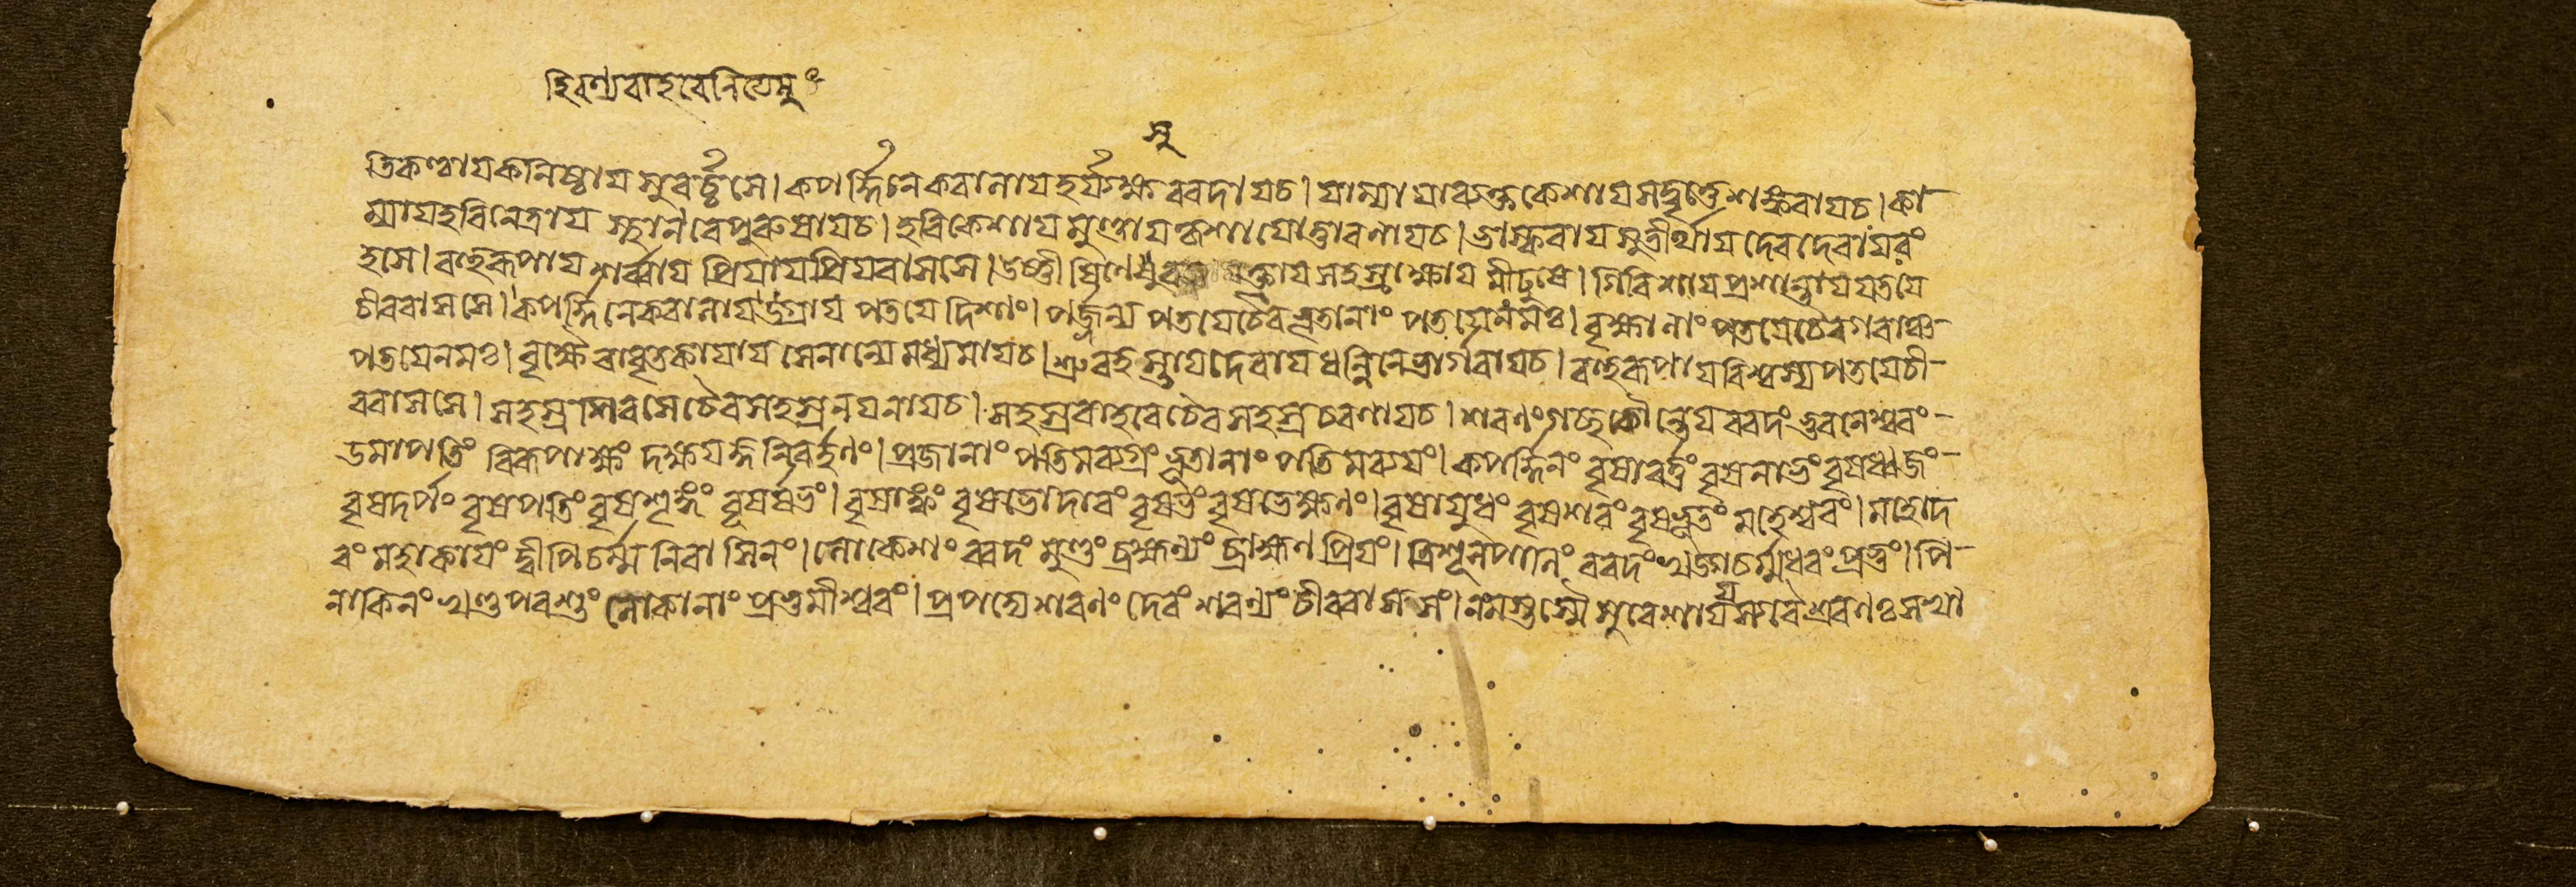 হিৰণ্যবাহবেনিত্যেষু
সু
তিকণ্ঠাযকনিষ্ঠায সুবৰ্চ্চসে। কপৰ্দ্দিনে কৰালাযহৰ্য্যক্ষ বৰদাযচ। যাম্যাযাৰক্তকেশাযসদ্বৃত্তেশঙ্কৰাযচ। কা-
ম্যাযহৰিনেত্ৰায স্থানবেপুৰুষাযচ। হৰিকেশায মুণ্ডাযকৃশাযোত্তাৰণাযচ। ভাস্কৰায সুতীৰ্থায দেবদেবাযৰং
হসে। বহুৰূপায শৰ্ব্বায প্ৰিযাযপ্ৰিযবাসসে। উষ্ণীষিণে সুবক্ত্ৰায সহস্ৰাক্ষায মীঢুষে। গিৰিশায প্ৰশান্তায যতযে
চীৰবাসসে। কপৰ্দ্দিনেকৰালায উগ্ৰায পতযে দিশাং। পৰ্জ্জন্য পতযেচৈবভূতানাং পতযেনমঃ। বৃক্ষানাং পতযেচৈবগবাঞ্চ-
পতযেনমঃ। বৃক্ষৈৰাবৃতকাযায সেনান্যে মধ্যমাযচ। শ্ৰুবহস্তাযদেবায ধন্বিনে ভাৰ্গবাযচ। বহুৰূপায বিশ্বস্যপতযেচী-
ৰবাসসে। সহস্ৰশিৰসে চৈবসহস্ৰনযনাযচ। সহস্ৰবাহবে চৈব সহস্ৰচৰণাযচ। শৰণং গচ্ছ কৌন্তেয বৰদং ভুবনেশ্বৰং-
উমাপতিং বিৰূপাক্ষং দক্ষযজ্ঞনিবৰ্হণং। প্ৰজানাং পতিমব্যগ্ৰং ভূতানাং পতিমব্যযং। কপৰ্দ্দিনং বৃষাবৰ্ত্তং বৃষনাভং বৃষধ্বজং-
বৃষদৰ্পং বৃষপতিং বৃষশৃঙ্গং বৃষৰ্ষভং। বৃষাঙ্কং বৃষভোদাৰং বৃষভং বৃষভেক্ষণং। বৃষাযুধং বৃষশৰং বৃষভূতং মহেশ্বৰং। মহোদ
ৰং মহাকাযং দ্বীপিচৰ্ম্ম নিবাসিনং। লোকেশং বৰদং মুণ্ডং ব্ৰহ্মণ্যং ব্ৰাহ্মণ প্ৰিযং। ত্ৰিশূলপাণিং বৰদং খড্গচৰ্ম্মধৰং প্ৰভুং। পি-
নাকিনং খণ্ডপৰশুং লোকানাং প্ৰভুমীশ্বৰং। প্ৰপদ্যে শৰণং দেবং শৰণ্যং চীৰবাসসং। নমস্তস্মৈ সুৰেশায যস্য বৈশ্ৰবণঃ সখা